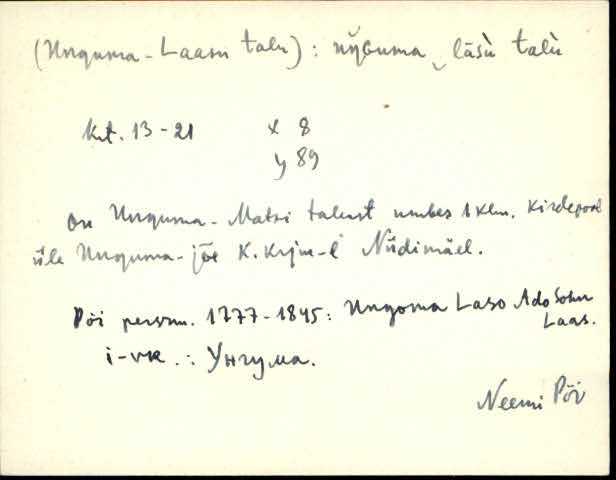 (Unguma-Laasu talu): talù
Krt. 13-21 x 8
y 89
On Unguma-Matsi talust umbes 1 klm. Kirdepool
üle Unguma-jõe K. Niidimäel.
Põi 1777-1845: Ungoma Laso Ado Sohn
Laas.
i-vk.: Унгума.
Neemi Põi